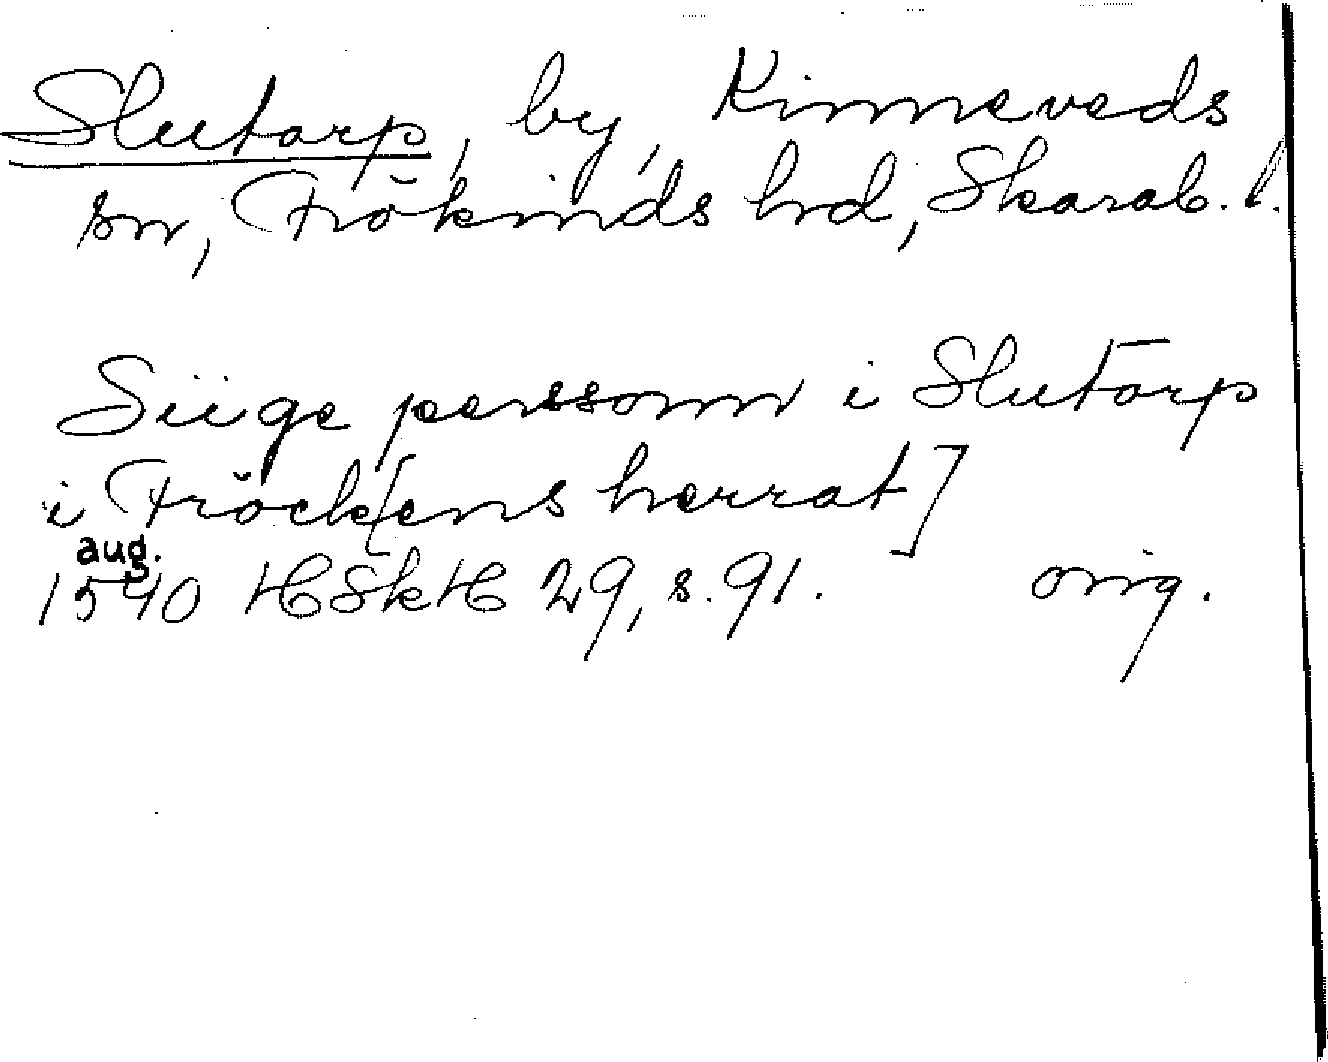 Slutarp, by, Kinneveds
sn, Frökinds hrd, Skarab. l.
Siige perssonn i Slutarp
i Fröck[ens herrat]
aug.
1540 HSkH 29, s. 91. orig.